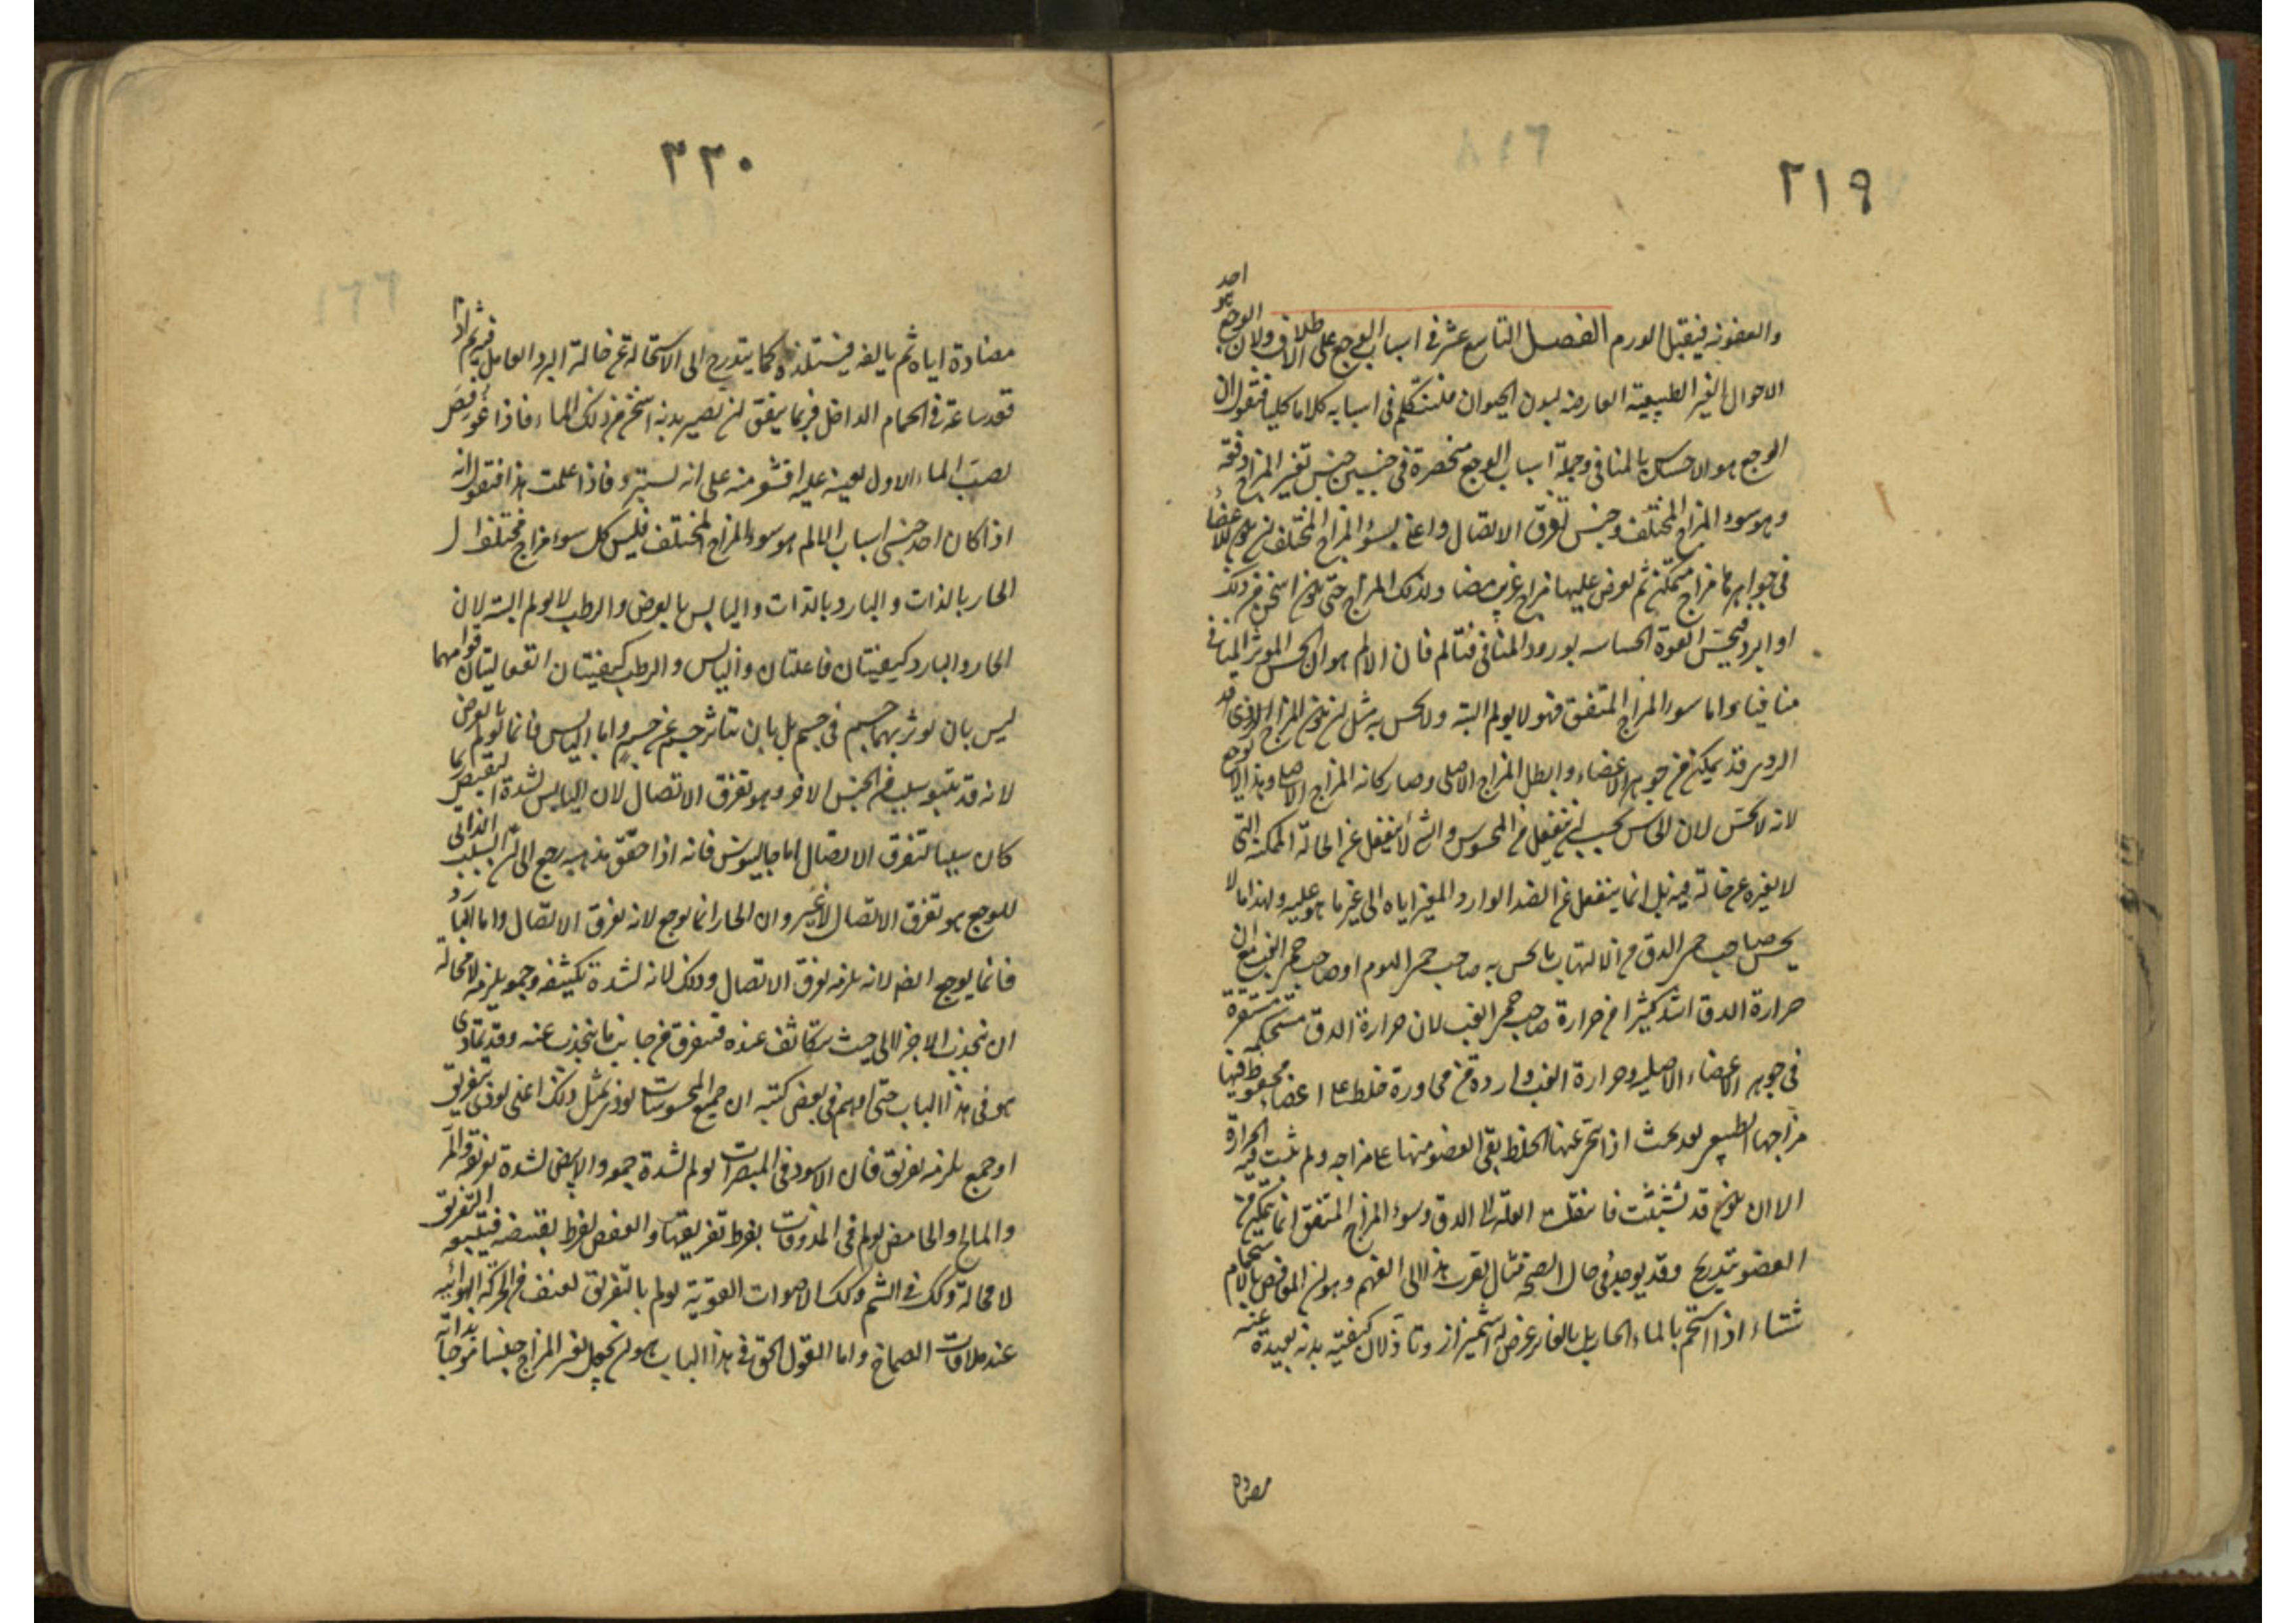 ٢١٩
والعفونه فيقبل الورم الفصل التاسع عشر في اسباب الوجع على الاطلاق ولان الوجع هو احد
الاحوال الغير الطبيعية العارضه لبدن الحيوان فلنتكلم في اسبابه كلاما كليا فنقول ان
الوجع هو الاحساس بالمنافي وجملة اسباب الوجع منحصرة في جنسين جنس تغير المزاج دفعة
وهو سوء المزاج المختلف وجنس تفرق الاتصال واعني بسوء المزاج المختلف ان يكون للاعضاء
في جواهرها مزاج متمكن ثم يعرض عليها مزاج غريب مضاد لذلك المزاج حتى يكون اسخن من ذلك
او ابرد فيحس القوة الحساسه بورود المنافي فتألم فان الالم هو ان يحس الموثر المنافي
منافيا واما سوء المزاج المتفق فهو لا يولم البتة ولا يحس به مثل ان يكون المزاج الردى قد
الردى قد تمكن من جوهر الاعضاء وابطل المزاج الاصلي وصار كانه المزاج الاصلي وهذا لا يوجع
لانه لا يحس لان الحاس يجب ان ينفعل من المحسوس والشي لا ينفعل عن الحالة المتمكنة التي
لا يغيره عن حالة فيه بل انما ينفعل عن الضد الوارد المغير اياه الى غير ما هو عليه ولهذا ما لا
يحس صاحب حمى الدق من الالتهاب ما يحس به صاحب حمى اليوم او صاحب حمى الغب مع ان
حرارة الدق اشد كثيرا من حرارة صاحب حمى الغب لان حرارة الدق مستحكمة مستقرة
في جوهر الاعضاء الاصليه وحرارة الغب واردة من مجاورة خلط على اعضاء محفوظ فيها
مزاجها الطبيعي بعد بحيث اذا تنحى عنها الخلط بقى العضو منها على مزاجه ولم يثبت فيه الحرارة
الا ان يكون قد تشبثت فانتقلت العلة الى الدق وسوء المزاج المتفق انما يتمكن من
العضو بتدريج وقد يوجد في حال الصحة مثال يقرب هذا الى الفهم وهو ان المفاقص بالاستحمام
شتاء اذا استحم بالماء الحار بل بالفاتر عرض له اشميزاز وتأذ لان كيفية بدنه بعيدة عنه
مضاده
٣٢٠
مضادة اياه ثم يالفه فيستلذه كما يتدرج الى الاستحالة عن حالة البرد العامل فيه ثم اذا
قعد ساعة في الحمام الداخل فربما يتفق ان يصير بدنه اسخن من ذلك الماء فاذا غوفص
بصب الماء الاول بعينه عليه اقشعر منه على انه يستبرد فاذا علمت هذا فنقول انه
اذا كان احد جنسي اسباب الالم هو سوء المزاج المختلف فليس كل سوء مزاج مختلف بل
الحار بالذات والبارد بالذات واليابس بالعرض والرطب لا يولم البتة لان
الحار والبارد كيفيتان فاعلتان واليابس والرطب كيفيتان انفعاليتان قوامهما
ليس بان يوثر بهما جسم في جسم بل بان يتاثر جسم عن جسم واما اليابس فانما يولم بالعرض
لانه قد يتبعه سبب من الجنس الاخر وهو تفرق الاتصال لان اليابس لشدة التقبيض ربما
كان سببا لتفرق الاتصال اما جالينوس فانه اذا حقق مذهبه رجع الى ان السبب الذاتي
للوجع هو تفرق الاتصال لا غير وان الحار انما يوجع لانه يفرق الاتصال واما البارد
فانما يوجع ايضا لانه يلزمه تفرق الاتصال وذلك لانه لشدة تكثيفه وجمعه يلزمه لا محالة
ان ينجذب الاجزاء الى حيث يتكاثف عنده فيتفرق من جانب ما ينجذب عنه وقد تمادى
هو في هذا الباب حتى اوهم في بعض كتبه ان جميع المحسوسات يوذى بمثل ذلك اعني يوذى بتفريق
او جمع يلزمه تفريق فان الاسود في المبصرات يولم لشدة جمعه والابيض لشدة تفريقه والمر
والمالح والحامض يولم في المذوقات بفرط تفريقها والعفص بفرط تقبيضه فيتبعه التفريق
لا محالة وكذلك في الشم وكذلك الاصوات القوية يولم بالتفريق لعنف من الحركة الهوائيه
عند ملاقات الصماخ واما القول الحق في هذا الباب هو ان يجعل تغير المزاج جنسا موجبا بذاته